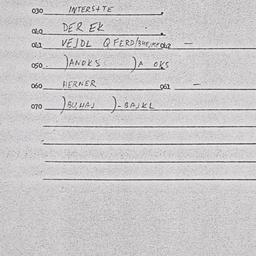 030 INTERSTE
040 DEREK
041 VEJDL Q FERD/ 042 —
050 JANOKS JA OKS
060 HERNER 061 —
070 )BUHAJ )-BAJKL